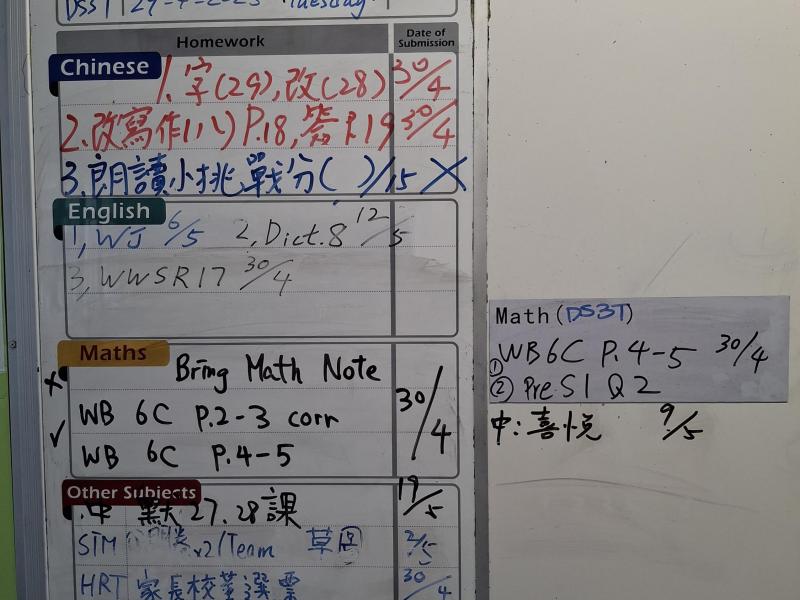 29-4-2025 Tuesday
Homework Date of Submission
Chinese
1. 字(29), 改(28) 30/4
2. 改寫作(八) P.18, 簽P.19 30/4
3. 朗讀小挑戰分( )/15 X
English
1, WJ 6/5 2, Dict. 8 12/5
3, WWSR17 30/4
Maths
Bring Math Note
WB 6C P.2-3 corr 30/4
WB 6C P.4-5
Other Subjects
中 默27.28課 19/5
STM x2/Team 草 2/5
HRT 家長校董選票 30/4
Math (DS3T)
① WB6C P.4-5 30/4
② Pre-S1 Q2
中: 喜悅 9/5